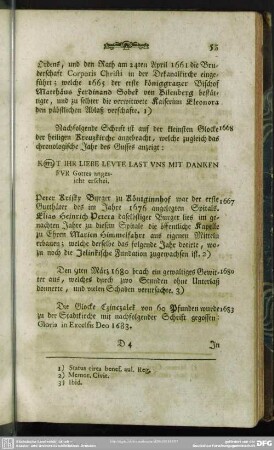 53
Ordens, und den Rath am 24ten April 1661 die Bru-
derschaft Corporis Christi in der Dekanalkirche einge-
führt; welche 1665 der erste königgratzer Bischof
Matthäus Ferdinand Sobek von Bilenberg bestät-
tigte, und zu selber die verwittwete Kaiserinn Eleonora
den päbstlichen Ablaß verschafte. 1)
Nachfolgende Schrift ist auf der kleinsten Glocke 1668
der heiligen Kreuzkirche angebracht, welche zugleich das
chronologische Jahr des Gusses anzeigt:
IHR LIEBE LEVTE LAST VNS MIT DANKEN
FVR Gottes ange-
sicht erschei.
Peter Krisky Burger zu Königinnhof war der erste 1667
Gutthäter des im Jahre 1676 angelegten Spitals.
Elias Heinrich Petera daselbstiger Burger ließ im ge-
nachten Jahre zu diesem Spitale die öffentliche Kapelle
zu Ehren Marien Himmelfahrt aus eigenen Mitteln
erbauen; welche derselbe das folgende Jahr dotirte, wo-
zu noch die Jelinkische Fundation zugewachsen ist. 2)
Den 5ten März 1680 brach ein gewaltiges Gewit- 1680
ter aus, welches durch zwo Stunden ohne Unterlaß
donnerte, und vielen Schaden verursachte. 3)
Die Glocke Czinczalek von 69 Pfunden wurde 1683
zu der Stadtkirche mit nachfolgender Schrift gegossen:
Gloria in Excelsis Deo 1683.
D 4 In
1) Status circa benef. aul. Reg.
2) Memor. Civic.
3) Ibid.